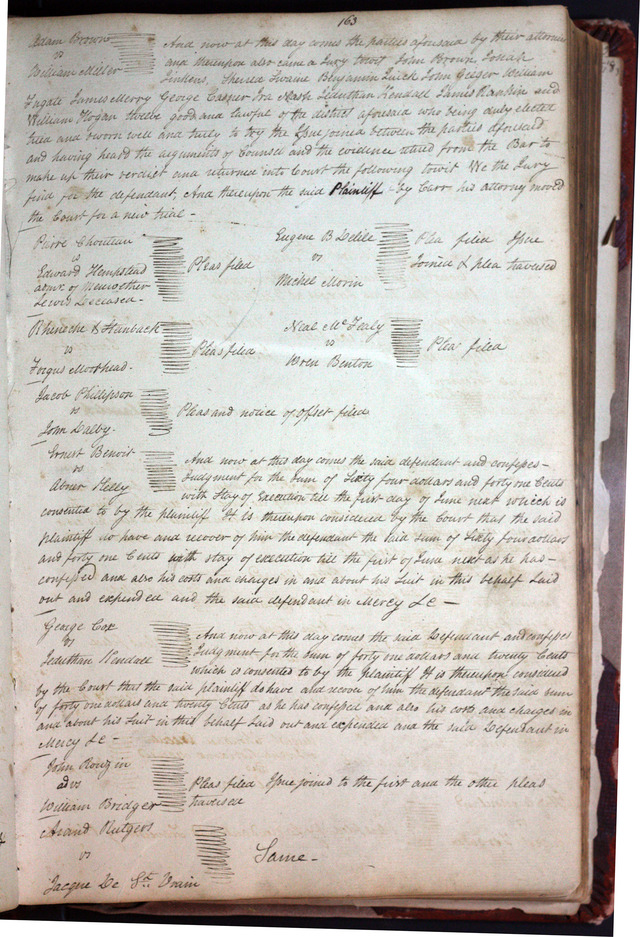 163
Adam Brown
vs
William Miller
And now at this day comes the parties aforesaid by their attornies
and thereupon also came a Jury towit John Brown Josiah
Jinkens, Sherea Swaine Benjamin Quick John Geiger William
Fugate James Merry George Casper Ira Nash Jeduthan Kendall James Rankin and
William Hogan twelve good and lawful of the district aforesaid who being duly elected
tried and sworn well and truly to try the Issue joined between the parties aforesaid
and having heard the arguments of Counsel and the evidence retired from the Bar to
make up their verdict and returned into Court the following towit We the Jury
find for the defendant, And thereupon the said Plaintiff by Carr his attorney moved
the Court for a new trial -
Pierre Chouteau
vs
Edward Hempstead
admr. of Merewether
Lewis Deceased -
Pleas filed
Eugene B Delile
vs
Michel Morin
Plea filed Issue
Joined & plea traversed
Rhenoche & Hanback
vs
Fergus Moorhead -
Pleas filed
Neal McFealy
vs
Bren Benton
Pleas filed
Jacob Philipson
vs
John Dalby -
Pleas and notice of offset filed
Ernest Benoit
vs
Abner
And now at this day comes the said defendant and confesses -
Judgment for the sum of Sixty four dollars and forty one Cents
with Stay of Execution till the first day of June next which is
consented to by the plaintiff It is thereupon considered by the Court that the said
plaintiff do have and recover of him the defendant the said sum of Sixty four dollars
and forty one Cents with stay of execution till the first of June next as he has -
confessed and also his costs and charges in and about his Suit in this behalf Laid
out and expended and the said defendant in Mercy &c -
George Cox
vs
Jeduthan Kendall
And now at this day comes the said Defendant and confesses
Judgment for the sum of forty one dollars and twenty Cents
which is consented to by the plaintiff It is thereupon considered
by the Court that the said plaintiff do have and recover of him the defendant the said sum
of forty one dollars and twenty Cents as he has confessed and also his costs and charges in
and about his Suit in this behalf Laid out and expended and the said Defendant in
Mercy &c -
John Rouzin
advs
William Bridger
Pleas filed Issue joined to the first and the other pleas
traversed
Arand Rutgers
vs
Jacque De St. Vrain
Same -